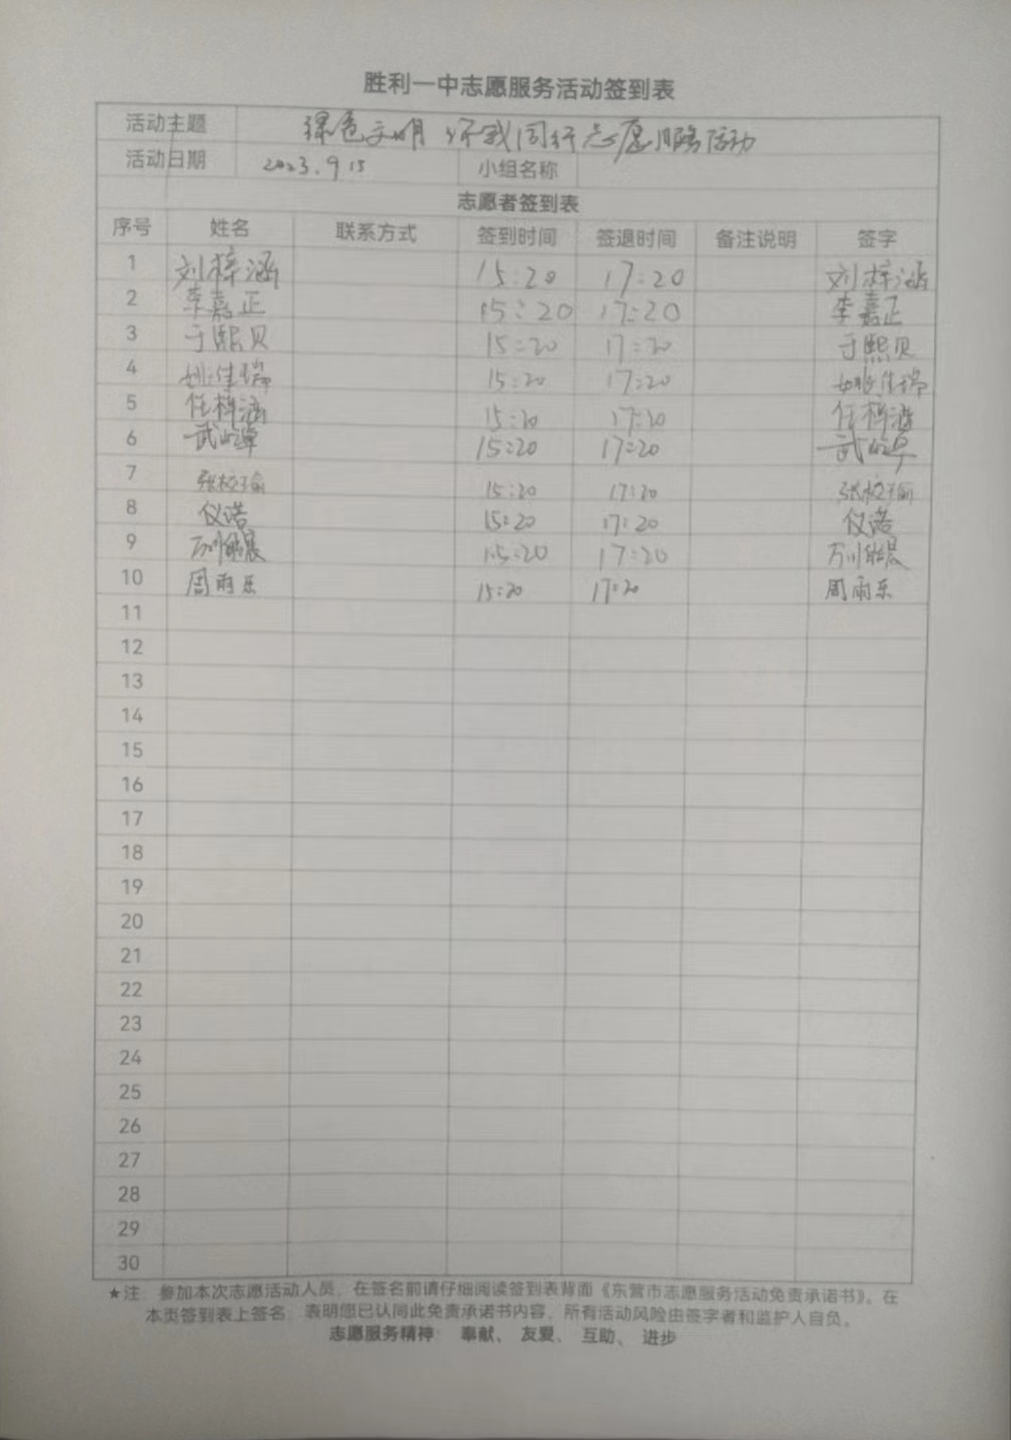 胜利一中志愿服务活动签到表
活动主题 绿色文明 你我同行志愿服务活动
活动日期 2023.9 15 小组名称
志愿者签到表
序号 姓名 联系方式 签到时间 签退时间 备注说明 签字
1 刘梓涵 15:20 17:20 刘梓涵
2 李嘉正 15:20 17:20 李嘉正
3 于熙贝 15:20 17:20 于熙贝
4 姚佳瑞 15:20 17:20 姚佳瑞
5 任梓涵 15:20 17:20 任梓涵
6 15:20 17:20
7 15:20 17:20
8 仪诺 15:20 17:20 仪诺
9 15:20 17:20
10 周雨乐 15:20 17:20 周雨乐
11
12
13
14
15
16
17
18
19
20
21
22
23
24
25
26
27
28
29
30
★注：参加本次志愿活动人员，在签名前请仔细阅读签到表背面《东营市志愿服务活动免责承诺书》。在
本页签到表上签名，表明您已认同此免责承诺书内容，所有活动风险由签字者和监护人自负。
志愿服务精神： 奉献、 友爱、 互助、 进步